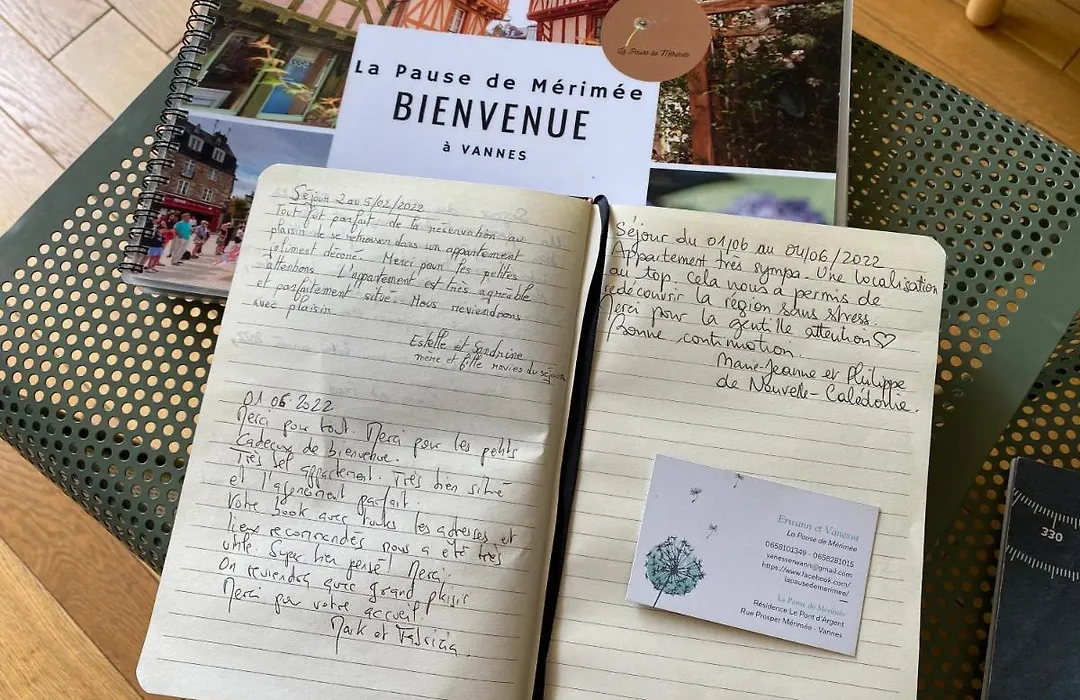 La Pause de Mérimée
BIENVENUE
à VANNES
La Pause de Mérimée
Séjour 2 au 5/02/2022
Tout fut parfait de la réservation au
plaisir de se retrouver dans un appartement
joliment décoré. Merci pour les petites
attentions. L'appartement est très agréable
et parfaitement situé. Nous reviendrons
avec plaisir
Estelle et Sandrine
mère et fille ravies du séjour
01.06.2022
Merci pour tout. Merci pour les petits
Cadeaux de bienvenue.
Très bel appartement. Très bien situé
et l'agencement parfait.
Votre book avec toutes les adresses et
lieux recommandés nous a été très
utile. Super bien pensé! Merci.
On reviendra avec grand plaisir
Merci pour votre accueil!
Mark et
Séjour du 01/06 au 04/06/2022
Appartement très sympa. Une localisation
au top. Cela nous a permis de
redécouvrir la région sans stress.
Merci pour la gentille attention♡
Bonne continuation.
Marie-Jeanne et Philippe
de Nouvelle-Calédonie.
Erwann et Vanessa
La Pause de Mérimée
0658101349 - 0658281015
vanesserwann@gmail.com
https://www.facebook.com/
lapausedemerimee/
La Pause de Mérimée
Résidence Le Pont d'Argent
Rue Prosper Mérimée - Vannes
330